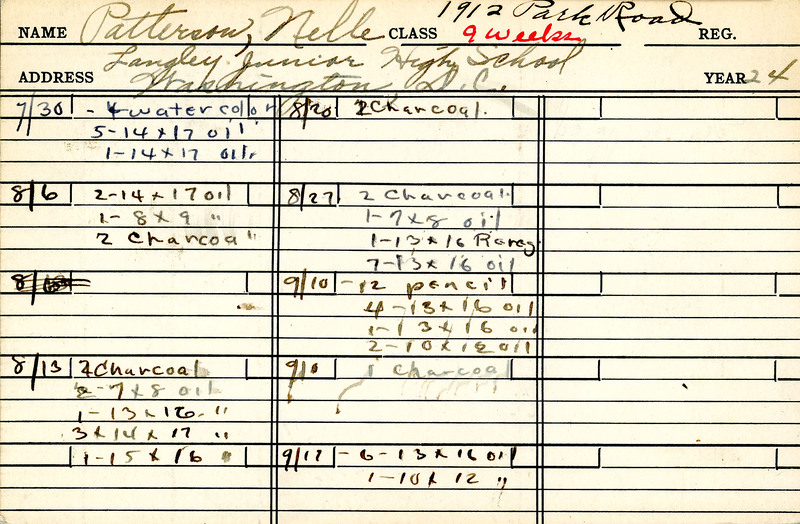 1912 Park Road
NAME Patterson, Nelle CLASS 9 Weeks REG.
Langley Junior High School
ADDRESS Washington D.C. YEAR 24
7/30 - 4 water color
5-14x17 oil
1-14x17 oil
8/6 2-14x17 oil
1- 8x9 "
2 Charcoal "
8/13 2 Charcoal
2-7x8 oil
1-13x16 "
3x14x17 "
1-15x16 "
8/20 2 Charcoal.
8/27 2 Charcoal
1-7x8 oil
1-13x16
7-13x16 oil
9/10 -12 pencil
4-13x16 oil
1-13x16 oil
2-10x12 oil
9/10 1 Charcoal
9/17 -6-13x16 oil
1-10x12 "